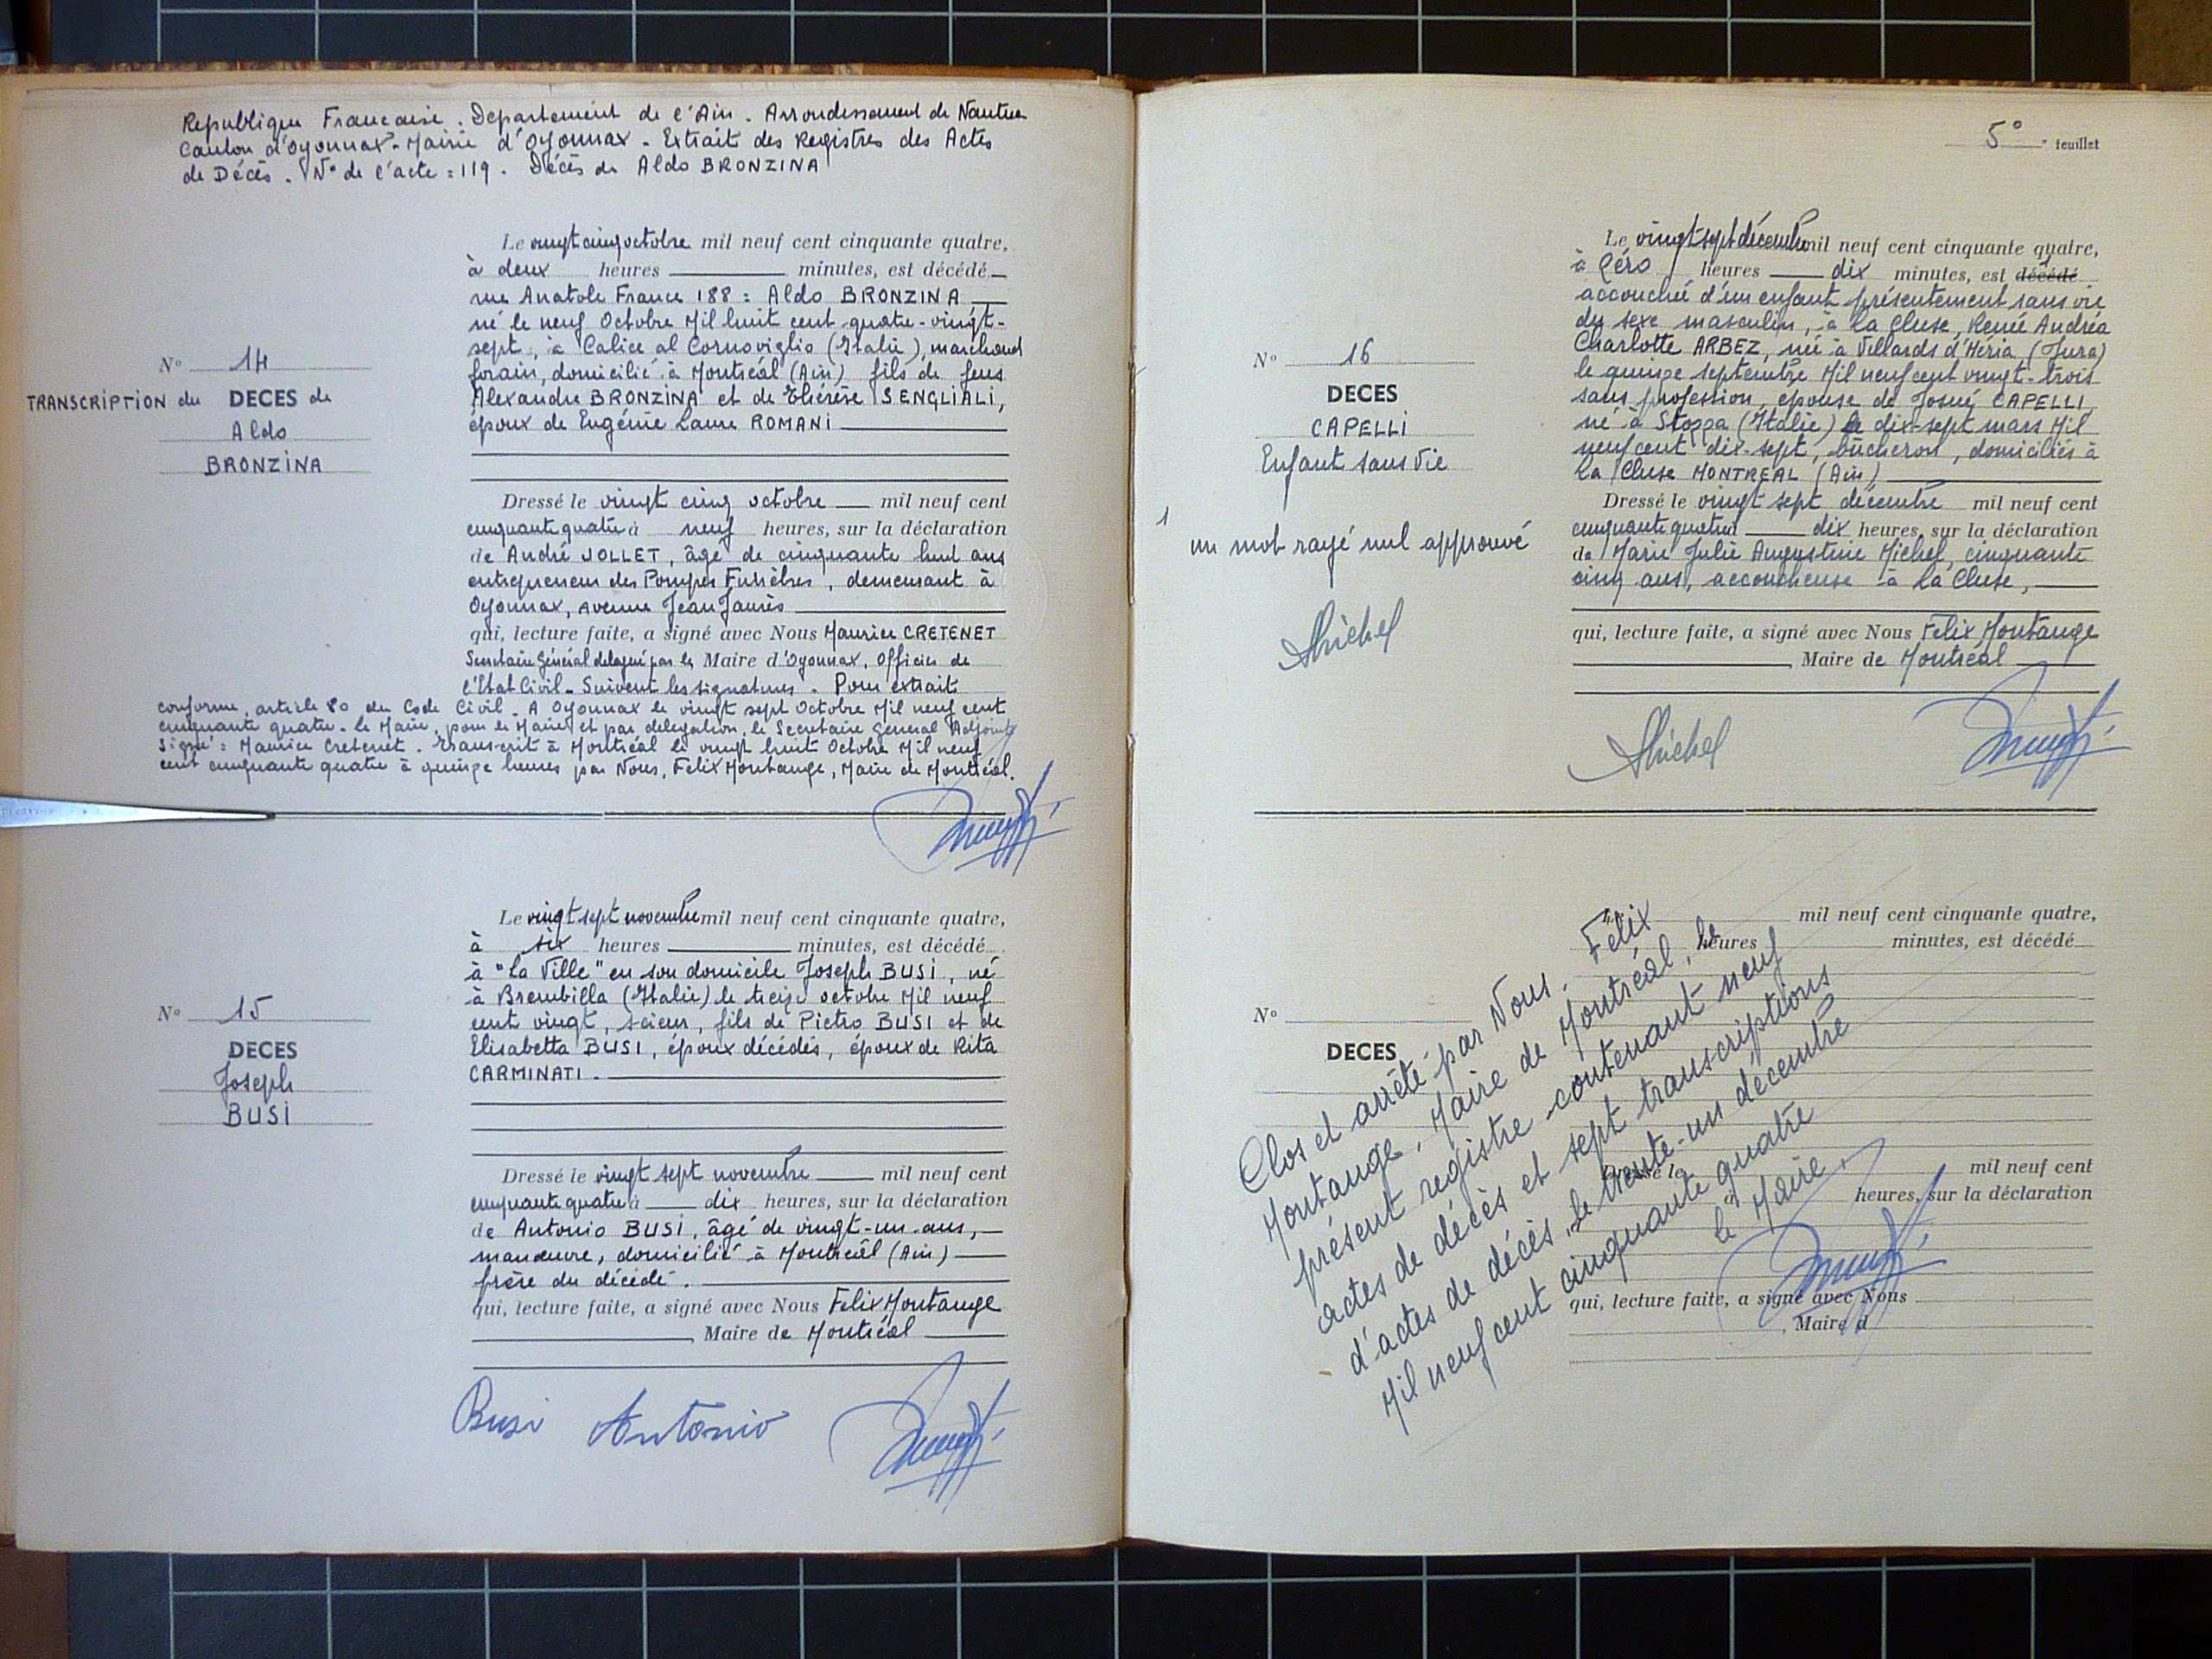 Republique Francaise. Departement de l'Ain. Arrondissement de Nantua
Canton d'Oyonnax. Mairie d'Oyonnax. Extrait des Registres des Actes
de Décès. N° de l'acte = 119. Décès de Aldo BRONZINA
N° 14
TRANSCRIPTION du DECES de
Aldo
BRONZINA
Le vingt cinq octobre mil neuf cent cinquante quatre,
à deux heures minutes, est décédé
rue Anatole France 188 : Aldo BRONZINA
né le neuf Octobre Mil huit cent quatre-vingt-
sept, à Calice al Cornoviglio (Italie), marchand
forain, domicilié à Montréal (Ain) fils de feus
Alexandre BRONZINA et de Thérèse SENGLIALI,
époux de Eugénie Laure ROMANI
Dressé le vingt cinq octobre mil neuf cent
cinquante quatre à neuf heures, sur la déclaration
de André JOLLET, âgé de cinquante huit ans
entrepreneur des Pompes Funèbres, demeurant à
Oyonnax, Avenue Jean Jaurès
qui, lecture faite, a signé avec Nous Maurice CRETENET
Secrétaire Général délégué par le Maire d'Oyonnax, Officier de
l'Etat Civil. Suivent les signatures. Pour extrait
conforme, article 80 du Code Civil. A Oyonnax le vingt sept Octobre Mil neuf cent
cinquante quatre. le Maire, pour le Maire et par délégation, le Secrétaire Général Adjoint
Signé : Maurice Cretenet. Transcrit à Montréal le vingt huit Octobre Mil neuf
cent cinquante quatre à quinze heures par Nous, Felix Montange, Maire de Montréal.
N° 15
DECES
Joseph
BUSI
Le vingt sept novembre mil neuf cent cinquante quatre,
à six heures minutes, est décédé
à "La Ville" en son domicile Joseph BUSI, né
à Brembilla (Italie) le treize octobre Mil neuf
cent vingt, scieur, fils de Pietro BUSI et de
Elisabetta BUSI, époux décédés, époux de Rita
CARMINATI.
Dressé le vingt sept novembre mil neuf cent
cinquante quatre à dix heures, sur la déclaration
de Antonio BUSI, âgé de vingt-un-ans,
manœuvre, domicilié à Montréal (Ain)
frère du décédé.
qui, lecture faite, a signé avec Nous Felix Montange
Maire de Montréal
Busi Antonio
5° feuillet
N° 16
DECES
CAPELLI
Enfant sans vie
1
un mot rayé nul approuvé
Michel
Le vingt sept décembre mil neuf cent cinquante quatre,
à zéro heures dix minutes, est décédé
accouchée d'un enfant présentement sans vie
du sexe masculin, à La Cluse, Renée Andréa
Charlotte ARBEZ, née à Villards d'Héria (Jura)
le quinze septembre Mil neuf cent vingt-trois
sans profession, épouse de Josué CAPELLI,
né à Stozza (Italie) le dix-sept mars Mil
neuf cent dix-sept, bûcheron, domiciliés à
La Cluse MONTREAL (Ain)
Dressé le vingt sept décembre mil neuf cent
cinquante quatre à dix heures, sur la déclaration
de Marie Julie Augustine Michel, cinquante
cinq ans, accoucheuse à La Cluse,
qui, lecture faite, a signé avec Nous Felix Montange
Maire de Montréal
Michel
N°
DECES
mil neuf cent cinquante quatre,
heures minutes, est décédé
Clos et arrêté par Nous, Félix
Montange, Maire de Montréal, le
présent registre contenant neuf
actes de décès et sept transcriptions
d'actes de décès, le trente-un décembre
Mil neuf cent cinquante quatre
le Maire,
Dressé le mil neuf cent
à heures, sur la déclaration
qui, lecture faite, a signé avec Nous
Maire d